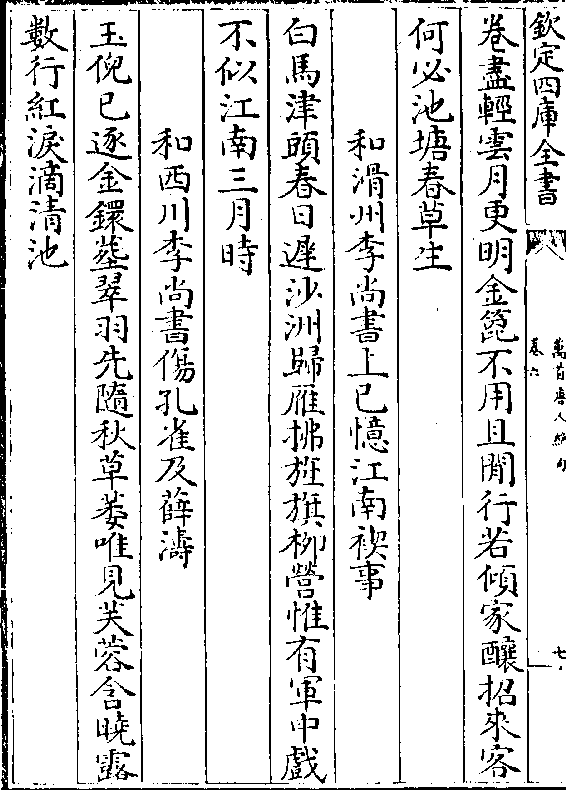 欽定四庫全書
萬首唐人絶句
卷六
七
卷盡輕雲月更明金箆不用且閒行若傾家釀招來客
何必池塘春草生
和滑州李尚書上巳憶江南禊事
白馬津頭春日遲沙洲歸雁拂旌旗柳營惟有軍中戲
不似江南三月時
和西川李尚書傷孔雀及薛濤
玉倪已逐金鐶塟翠羽先隨秋草萎唯見芙蓉含曉露
數行紅淚滴清池